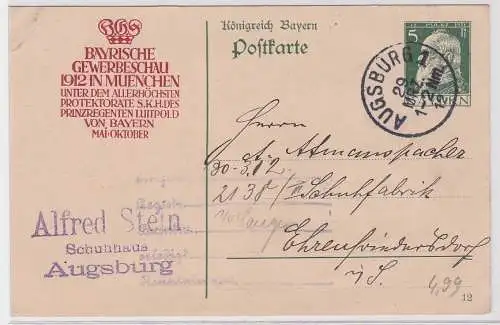 BAYRISCHE
GEWERBESCHAU
1912 IN MUENCHEN
UNTER DEM ALLERHÖCHSTEN
PROTEKTORATE S.K.H. DES
PRINZREGENTEN LUITPOLD
VON BAYERN
MAI-OKTOBER
Königreich Bayern
Postkarte
5
AUGSBURG 1
29
MRZ
1-2 Nm.
12
Herrn
A. Atmanspacher
30-3.12.
2138 / Schuhfabrik
Ehrenfriedersdorf
i/S.
Alfred Stein
Schuhhaus
Augsburg
4,99
12